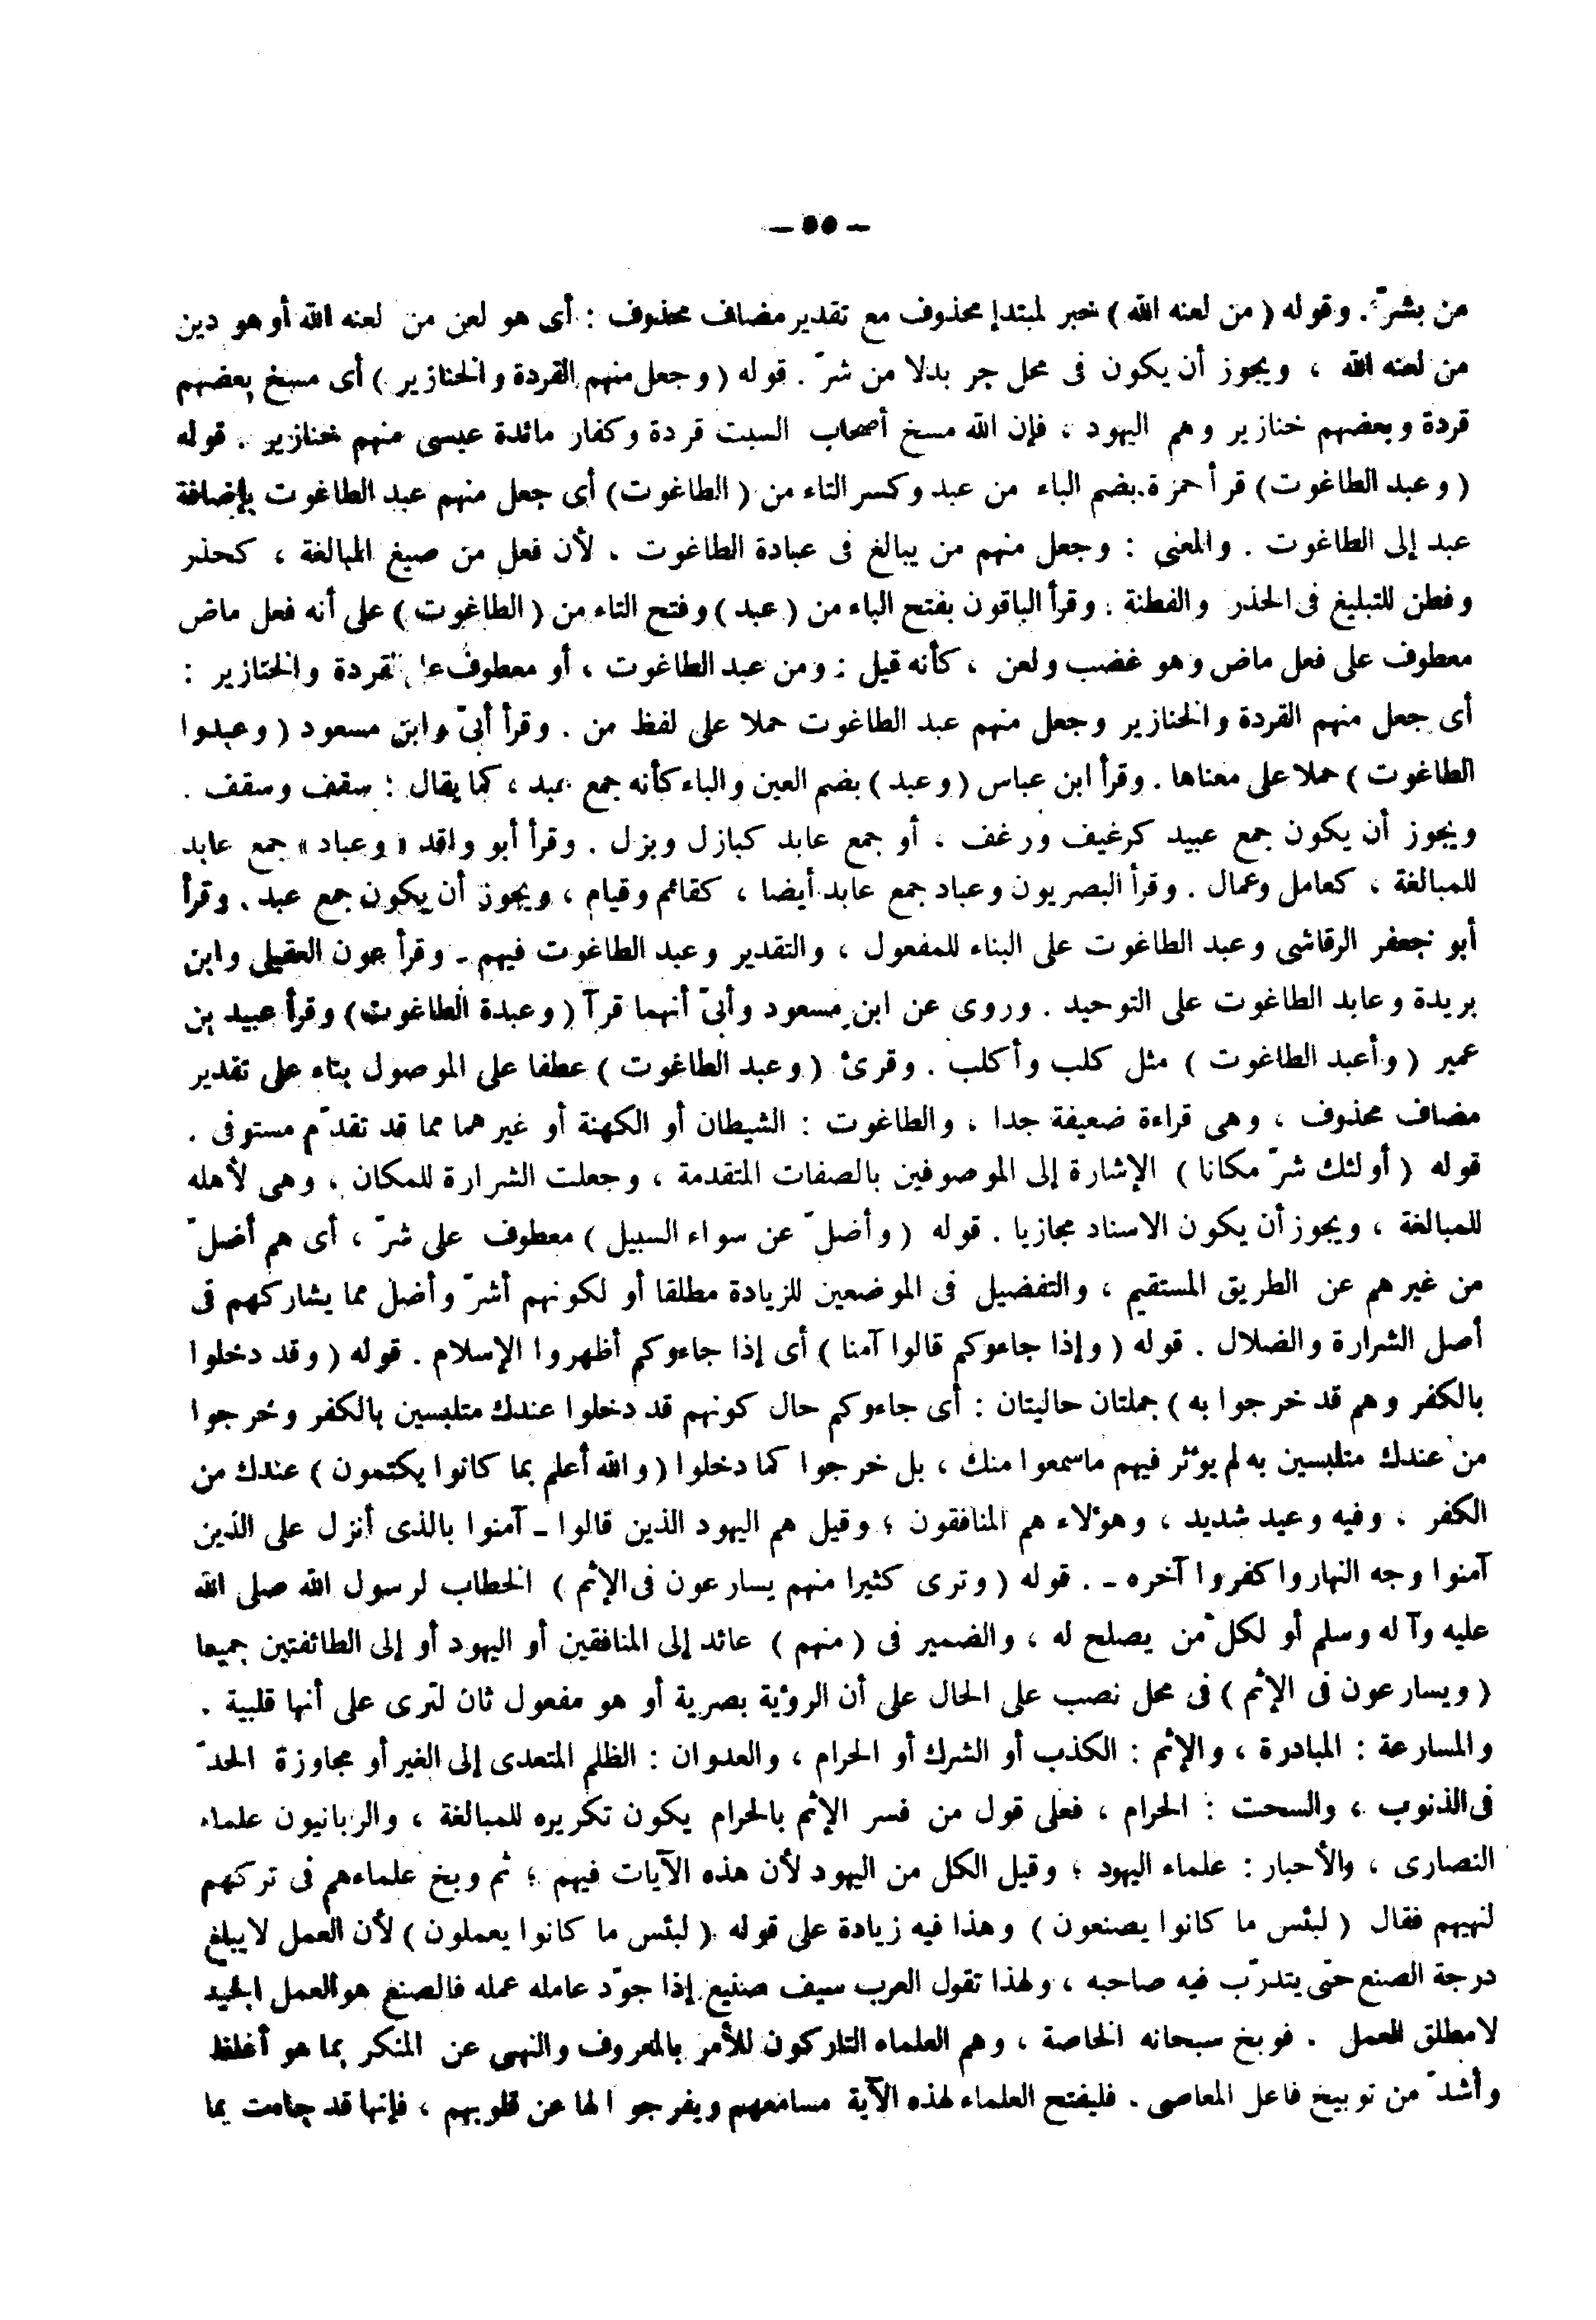 – ٥٥ –
من بشرّ . وقوله ( من لعنه الله ) خبر لمبتدإ محذوف مع تقدير مضاف محذوف : أى هو لعن من لعنه الله أو هو دين
من لعنه الله ، ويجوز أن يكون فى محل جر بدلا من شرّ . قوله ( وجعل منهم القردة والخنازير ) أى مسخ بعضهم
قردة وبعضهم خنازير وهم اليهود ، فإن الله مسخ أصحاب السبت قردة وكفار مائدة عيسى منهم خنازير . قوله
( وعبد الطاغوت ) قرأ حمزة بضم الباء من عبد وكسر التاء من ( الطاغوت ) أى جعل منهم عبد الطاغوت بإضافة
عبد إلى الطاغوت . والمعنى : وجعل منهم من يبالغ فى عبادة الطاغوت ، لأن فعل من صيغ المبالغة ، كحذر
وفطن للتبليغ فى الحذر والفطنة . وقرأ الباقون بفتح الباء من ( عبد ) وفتح التاء من ( الطاغوت ) على أنه فعل ماض
معطوف على فعل ماض وهو غضب ولعن ، كأنه قيل : ومن عبد الطاغوت ، أو معطوف على القردة والخنازير :
أى جعل منهم القردة والخنازير وجعل منهم عبد الطاغوت حملا على لفظ من . وقرأ أبىّ وابن مسعود ( وعبدوا
الطاغوت ) حملا على معناها . وقرأ ابن عباس ( وعبد ) بضم العين والباء كأنه جمع عبد ، كما يقال : سقف وسقف .
ويجوز أن يكون جمع عبيد كرغيف ورغف ، أو جمع عابد كبازل وبزل . وقرأ أبو واقد « وعباد » جمع عابد
للمبالغة ، كعامل وعمال . وقرأ البصريون وعباد جمع عابد أيضا ، كقائم وقيام ، ويجوز أن يكون جمع عبد . وقرأ
أبو جعفر الرقاشى وعبد الطاغوت على البناء للمفعول ، والتقدير وعبد الطاغوت فيهم - وقرأ عون العقيلى وابن
بريدة وعابد الطاغوت على التوحيد . وروى عن ابن مسعود وأبىّ أنهما قرآ ( وعبدة الطاغوت ) وقرأ عبيد بن
عمير ( وأعبد الطاغوت ) مثل كلب وأكلب . وقرئ ( وعبد الطاغوت ) عطفا على الموصول بناء على تقدير
مضاف محذوف ، وهى قراءة ضعيفة جدا ، والطاغوت : الشيطان أو الكهنة أو غيرهما مما قد تقدّم مستوفى .
قوله ( أولئك شرّ مكانا ) الإشارة إلى الموصوفين بالصفات المتقدمة ، وجعلت الشرارة للمكان ، وهى لأهله
للمبالغة ، ويجوز أن يكون الاسناد مجازيا . قوله ( وأضلّ عن سواء السبيل ) معطوف على شرّ ، أى هم أضلّ
من غيرهم عن الطريق المستقيم ، والتفضيل فى الموضعين للزيادة مطلقا أو لكونهم أشرّ وأضل مما يشاركهم فى
أصل الشرارة والضلال . قوله ( وإذا جاءوكم قالوا آمنا ) أى إذا جاءوكم أظهروا الإسلام . قوله ( وقد دخلوا
بالكفر وهم قد خرجوا به ) جملتان حاليتان : أى جاءوكم حال كونهم قد دخلوا عندك متلبسين بالكفر وخرجوا
من عندك متلبسين به لم يؤثر فيهم ماسمعوا منك ، بل خرجوا كما دخلوا ( والله أعلم بما كانوا يكتمون ) عندك من
الكفر ، وفيه وعيد شديد ، وهؤلاء هم المنافقون ؛ وقيل هم اليهود الذين قالوا - آمنوا بالذى أنزل على الذين
آمنوا وجه النهار واكفروا آخره - . قوله ( وترى كثيرا منهم يسارعون فى الإثم ) الخطاب لرسول الله صلى الله
عليه وآله وسلم أو لكل من يصلح له ، والضمير فى ( منهم ) عائد إلى المنافقين أو اليهود أو إلى الطائفتين جميعا
( ويسارعون فى الإثم ) فى محل نصب على الحال على أن الرؤية بصرية أو هو مفعول ثان لترى على أنها قلبية .
والمسارعة : المبادرة ، والإثم : الكذب أو الشرك أو الحرام ، والعدوان : الظلم المتعدى إلى الغير أو مجاوزة الحدّ
فى الذنوب ، والسحت : الحرام ، فعلى قول من فسر الإثم بالحرام يكون تكريره للمبالغة ، والربانيون علماء
النصارى ، والأحبار : علماء اليهود ؛ وقيل الكل من اليهود لأن هذه الآيات فيهم ؛ ثم وبخ علماءهم فى تركهم
لنهيهم فقال ( لبئس ما كانوا يصنعون ) وهذا فيه زيادة على قوله ( لبئس ما كانوا يعملون ) لأن العمل لايبلغ
درجة الصنع حتى يتدرّب فيه صاحبه ، ولهذا تقول العرب سيف صنيع إذا جوّد عامله عمله فالصنع هو العمل الجيد
لامطلق العمل . فوبخ سبحانه الخاصة ، وهم العلماء التاركون للأمر بالمعروف والنهى عن المنكر بما هو أغلظ
وأشدّ من توبيخ فاعل المعاصى . فليفتح العلماء لهذه الآية مسامعهم ويفرجوا لها عن قلوبهم ، فإنها قد جاءت بما